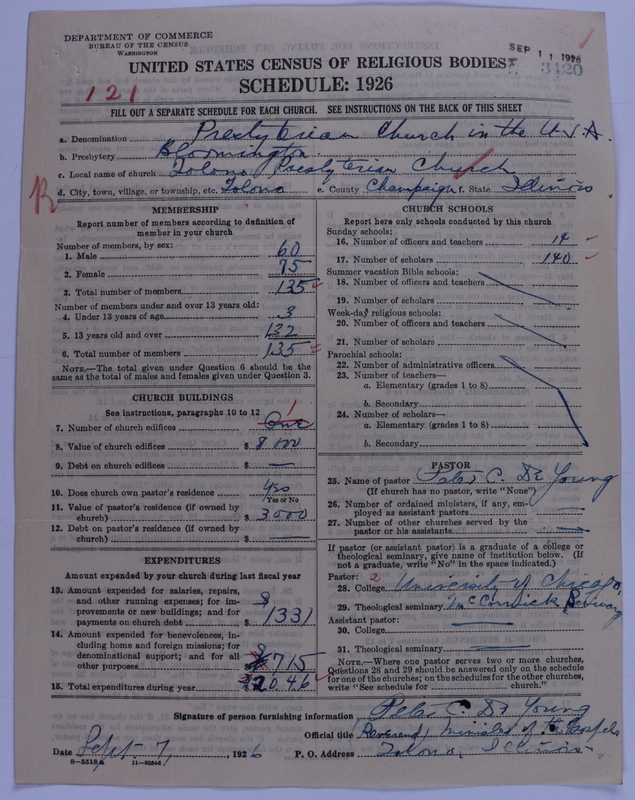 DEPARTMENT OF COMMERCE
BUREAU OF THE CENSUS
WASHINGTON
SEP 11 1926
3420
UNITED STATES CENSUS OF RELIGIOUS BODIES
SCHEDULE: 1926
121
FILL OUT A SEPARATE SCHEDULE FOR EACH CHURCH. SEE INSTRUCTIONS ON THE BACK OF THIS SHEET
a. Denomination Presbyterian Church in the U.S.A.
b. Presbytery Bloomington
c. Local name of church Tolono Presbyterian Church
R
d. City, town, village, or township, etc. Tolono e. County Champaign f. State Illinois
MEMBERSHIP
Report number of members according to definition of
member in your church
Number of members, by sex:
1. Male 60
2. Female 75
3. Total number of members 135
Number of members under and over 13 years old:
4. Under 13 years of age 3
5. 13 years old and over 132
6. Total number of members 135
NOTE.—The total given under Question 6 should be
same as the total of males and females given under Question 3.
CHURCH BUILDINGS
See instructions, paragraphs 10 to 12
7. Number of church edifices One 1
8. Value of church edifices $ 8000
9. Debt on church edifices $ —
10. Does church own pastor's residence yes
Yes or No
11. Value of pastor's residence (if owned by
church) $ 3000
12. Debt on pastor's residence (if owned by
church) $ —
EXPENDITURES
Amount expended by your church during last fiscal year
13. Amount expended for salaries, repairs,
and other running expenses; for im-
provements or new buildings; and for
payments on church debt $ 1331
14. Amount expended for benevolences, in-
cluding home and foreign missions; for
denominational support; and for all
other purposes $ 715
15. Total expenditures during year $ 2046
CHURCH SCHOOLS
Report here only schools conducted by this church
Sunday schools:
16. Number of officers and teachers 14
17. Number of scholars 140
Summer vacation Bible schools:
18. Number of officers and teachers
19. Number of scholars
Week-day religious schools:
20. Number of officers and teachers
21. Number of scholars
Parochial schools:
22. Number of administrative officers
23. Number of teachers—
a. Elementary (grades 1 to 8)
b. Secondary
24. Number of scholars—
a. Elementary (grades 1 to 8)
b. Secondary
PASTOR
25. Name of pastor Peter C. De Young
(If church has no pastor, write "None")
26. Number of ordained ministers, if any, em-
ployed as assistant pastors —
27. Number of other churches served by the
pastor or his assistants —
If pastor (or assistant pastor) is a graduate of a college or
theological seminary, give name of institution below. (If
not a graduate, write "No" in the space indicated.)
Pastor: 2
28. College University of Chicago
29. Theological seminary McCormick
Assistant pastor:
30. College —
31. Theological seminary —
NOTE.—Where one pastor serves two or more churches,
Questions 28 and 29 should be answered only on the schedule
for one of the churches; on the schedules for the other churches,
write "See schedule for church."
Signature of person furnishing information Peter C. De Young
Official title (Reverend) Minister of the Gospel
Date Sept. 7, 1926 P. O. Address Tolono, Illinois
8—5518a 11—